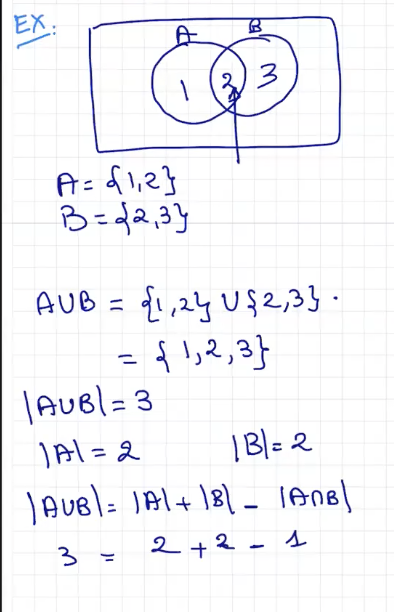 EX:
A B
1 2 3
A = {1,2}
B = {2,3}
A∪B = {1,2} ∪ {2,3}.
= {1,2,3}
|A∪B| = 3
|A| = 2 |B| = 2
|A∪B| = |A| + |B| - |A∩B|
3 = 2 + 2 - 1